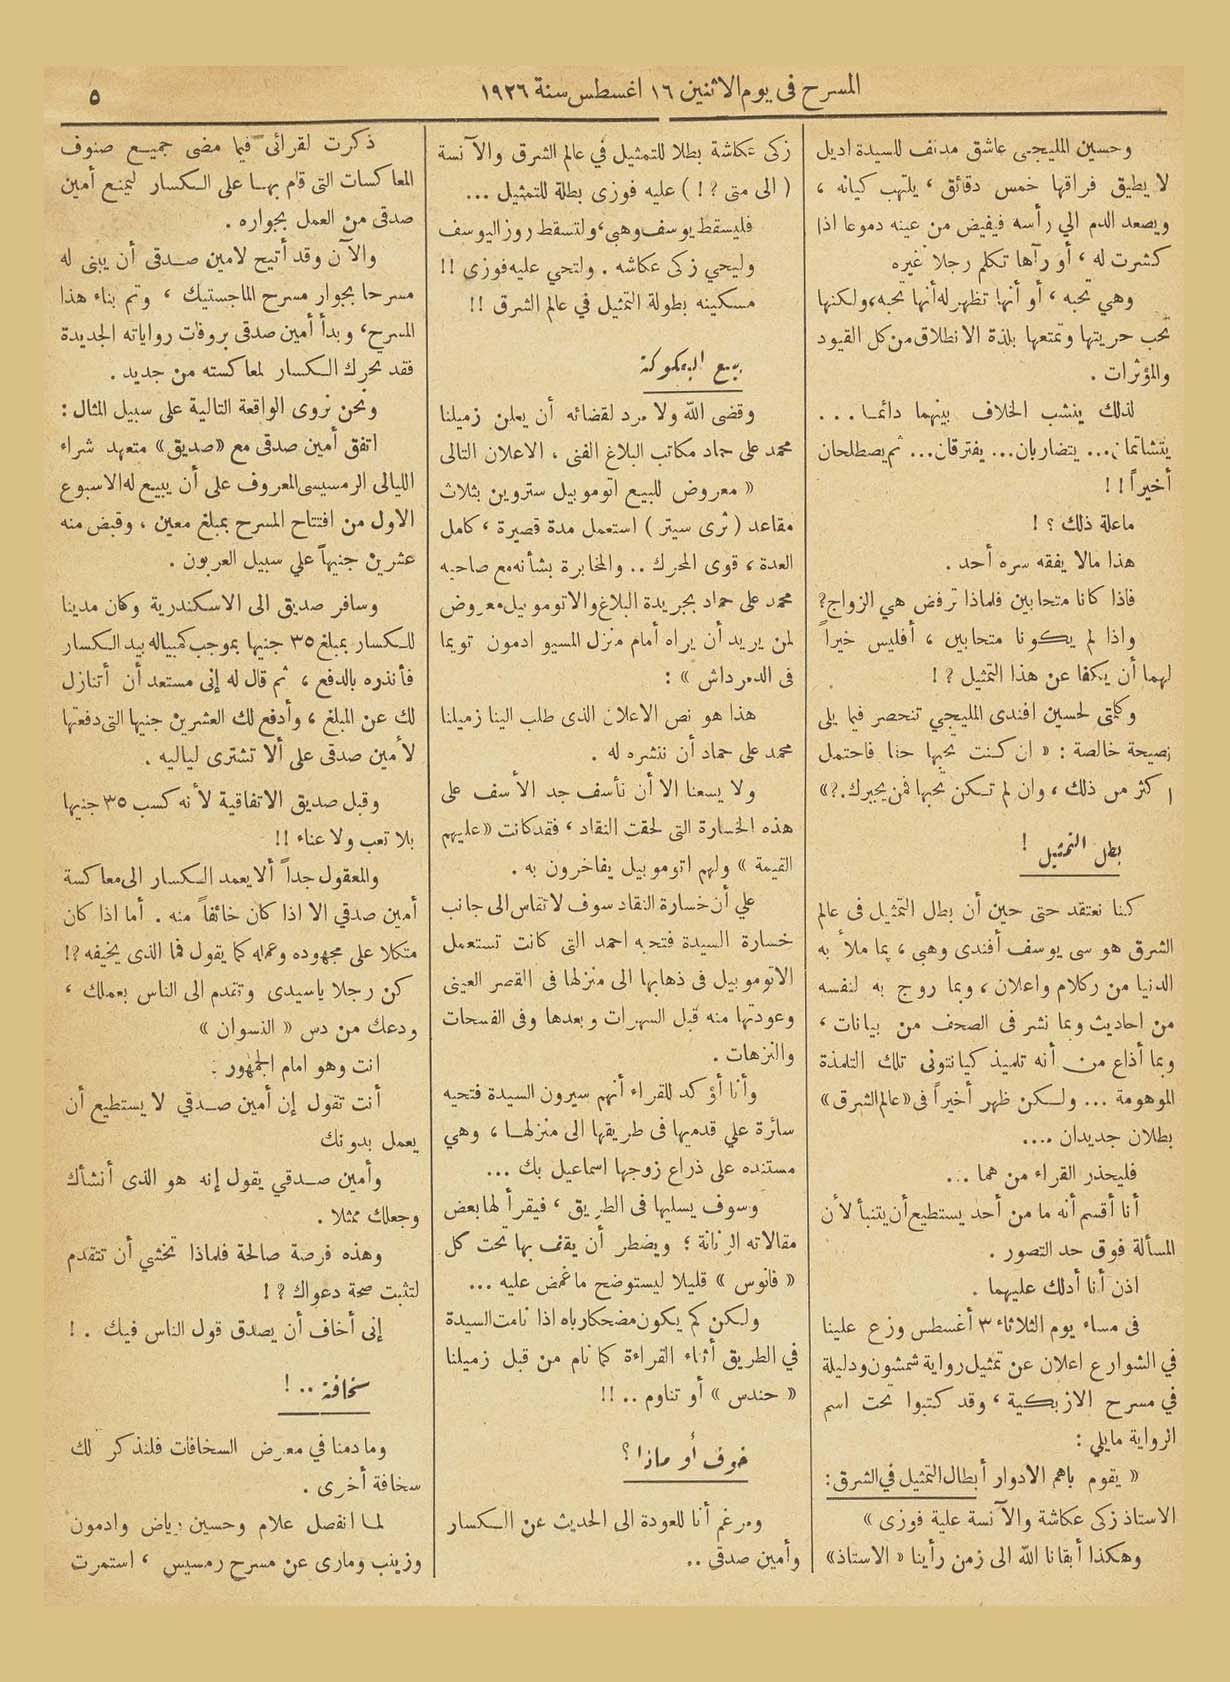 المسرح فى يوم الاثنين ١٦ اغسطس سنة ١٩٢٦
٥
وحسين المليجى عاشق مدنف للسيدة اديل
لا يطيق فراقها خمس دقائق ، يلتهب كيانه ،
ويصعد الدم الي رأسه فيفيض من عينه دموعا اذا
كشرت له ، أو رآها تكلم رجلا غيره
وهي تحبه ، أو أنها تظهر له أنها تحبه، ولكنها
تحب حريتها وتمتعها بلذة الانطلاق من كل القيود
والمؤثرات .
لذلك ينشب الخلاف بينهما دائما ...
يتشاتمان... يتضاربان... يفترقان... ثم يصطلحان
أخيراً !!
ماعلة ذلك ؟ !
هذا مالا يفقه سره أحد .
فاذا كانا متحابين فلماذا ترفض هي الزواج؟
واذا لم يكونا متحابين ، أفليس خيراً
لهما أن يكفا عن هذا التمثيل ؟ !
وكلمتى لحسين افندى المليجي تنحصر فيما يلى
نصيحة خالصة : « ان كنت تحبها حقا فاحتمل
ا كثر من ذلك ، وان لم تكن تحبها فمن يجبرك.؟»
بطل التمثيل !
كنا نعتقد حتى حين أن بطل التمثيل فى عالم
الشرق هو سى يوسف أفندى وهبي ، بما ملأ به
الدنيا من ركلام واعلان ، وبما روج به لنفسه
من احاديث وبما نشر فى الصحف من بيانات ،
وبما أذاع من أنه تلميذ كيانتونى تلك التلمذة
الموهومة ... ولكن ظهر أخيراً فى «عالم الشرق»
بطلان جديدان ....
فليحذر القراء من هما ...
أنا أقسم أنه ما من أحد يستطيع أن يتنبأ لأن
المسألة فوق حد التصور .
اذن أنا أدلك عليهما .
فى مساء يوم الثلاثاء ٣ أغسطس وزع علينا
في الشوارع اعلان عن تمثيل رواية شمشون ودليلة
في مسرح الازبكية ، وقد كتبوا تحت اسم
الرواية مايلي :
« يقوم باهم الادوار أبطال التمثيل في الشرق :
الاستاذ زكى عكاشة والآنسة علية فوزى »
وهكذا أبقانا الله الى زمن رأينا « الاستاذ»
زكى عكاشة بطلا للتمثيل في عالم الشرق والآنسة
( الى متى ؟ ! ) عليه فوزى بطلة للتمثيل ...
فليسقط يوسف وهبي، ولتسقط روز اليوسف
وليحي زكى عكاشه . ولتحي عليه فوزى !!
مسكينه بطولة التمثيل في عالم الشرق !!
بيع البعكوكة
وقضى الله ولا مرد لقضائه أن يعلن زميلنا
محمد على حماد مكاتب البلاغ الفنى ، الاعلان التالى
« معروض للبيع اتوموبيل ستروين بثلاث
مقاعد ( ثرى سيتر ) استعمل مدة قصيرة ، كامل
العدة ، قوى المحرك .. والمخابرة بشأنه مع صاحبه
محمد على حماد بجريدة البلاغ والاتوموبيل معروض
لمن يريد أن يراه أمام منزل المسيو ادمون تويما
فى الدمرداش » :
هذا هو نص الاعلان الذى طلب الينا زميلنا
محمد على حماد أن ننشره له .
ولا يسعنا الا أن نأسف جد الأسف على
هذه الخسارة التى لحقت النقاد ، فقد كانت «عليهم
القيمة » ولهم اتوموبيل يفاخرون به .
علي أن خسارة النقاد سوف لا تقاس الى جانب
خسارة السيدة فتحيه احمد التى كانت تستعمل
الاتوموبيل فى ذهابها الى منزلها فى القصر العينى
وعودتها منه قبل السهرات وبعدها وفى الفسحات
والنزهات .
وأنا أؤكد للقراء أنهم سيرون السيدة فتحيه
سائرة علي قدميها فى طريقها الى منزلها ، وهي
مستنده على ذراع زوجها اسماعيل بك ...
وسوف يسليها فى الطريق ، فيقرأ لها بعض
مقالاته الرنانة ؛ ويضطر أن يقف بها تحت كل
« فانوس » قليلا ليستوضح ما غمض عليه ...
ولكن كم يكون مضحكا رباه اذا نامت السيدة
في الطريق أثناء القراءة كما نام من قبل زميلنا
« حندس » أو تناوم .. !!
خوف أو ماذا ؟
ومرغم أنا للعودة الى الحديث عن الكسار
وأمين صدقى ..
ذكرت لقرائى فيما مضى جميع صنوف
المعاكسات التى قام بها على الكسار ليمنع أمين
صدقى من العمل بجواره .
والآن وقد أتيح لامين صدقى أن يبنى له
مسرحا بجوار مسرح الماجستيك ، وتم بناء هذا
المسرح، وبدأ أمين صدقى بروفات رواياته الجديدة
فقد تحرك الكسار لمعاكسته من جديد .
ونحن نروى الواقعة التالية على سبيل المثال :
اتفق أمين صدقى مع «صديق» متعهد شراء
الليالى الرمسيسى المعروف على أن يبيع له الاسبوع
الاول من افتتاح المسرح بمبلغ معين ، وقبض منه
عشرين جنيهاً علي سبيل العربون .
وسافر صديق الى الاسكندرية وكان مدينا
للكسار بمبلغ ٣٥ جنيها بموجب كمبياله بيد الكسار
فأنذره بالدفع ، ثم قال له إنى مستعد أن أتنازل
لك عن المبلغ ، وأدفع لك العشرين جنيها التى دفعتها
لأمين صدقى على ألا تشترى لياليه .
وقبل صديق الاتفاقية لأنه كسب ٣٥ جنيها
بلا تعب ولا عناء !!
والمعقول جداً ألا يعمد الكسار الى معاكسة
أمين صدقي الا اذا كان خائفاً منه . أما اذا كان
متكلا على مجهوده وعمله كما يقول فما الذى يخيفه ؟!
كن رجلا ياسيدى وتقدم الى الناس بعملك ،
ودعك من دس « النسوان »
انت وهو امام الجمهور :
أنت تقول إن أمين صدقي لا يستطيع أن
يعمل بدونك
وأمين صدقي يقول إنه هو الذى أنشأك
وجعلك ممثلا .
وهذه فرصة صالحة فلماذا تخشي أن تتقدم
لتثبت صحة دعواك ؟ !
إنى أخاف أن يصدق قول الناس فيك . !
سخافة .. !
وما دمنا في معرض السخافات فلنذكر لك
سخافة أخرى .
لما انفصل علام وحسين رياض وادمون
وزينب ومارى عن مسرح رمسيس ، استمرت